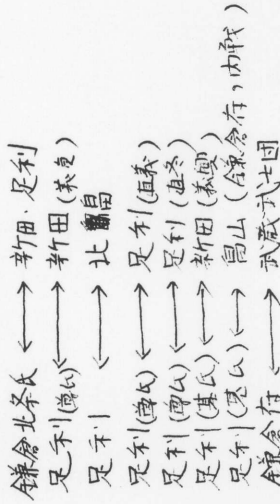 鎌倉北条氏 ←→ 新田・足利
足利(尊氏) ←→ 新田(義貞)
足利 ←→ 北畠
足利(尊氏) ←→ 足利(直義)
足利(尊氏) ←→ 足利(直冬)
足利(基氏) ←→ 新田(義興)
足利(基氏) ←→ 畠山(鎌倉府,内戦)
鎌倉府 ←→ 武蔵武士団